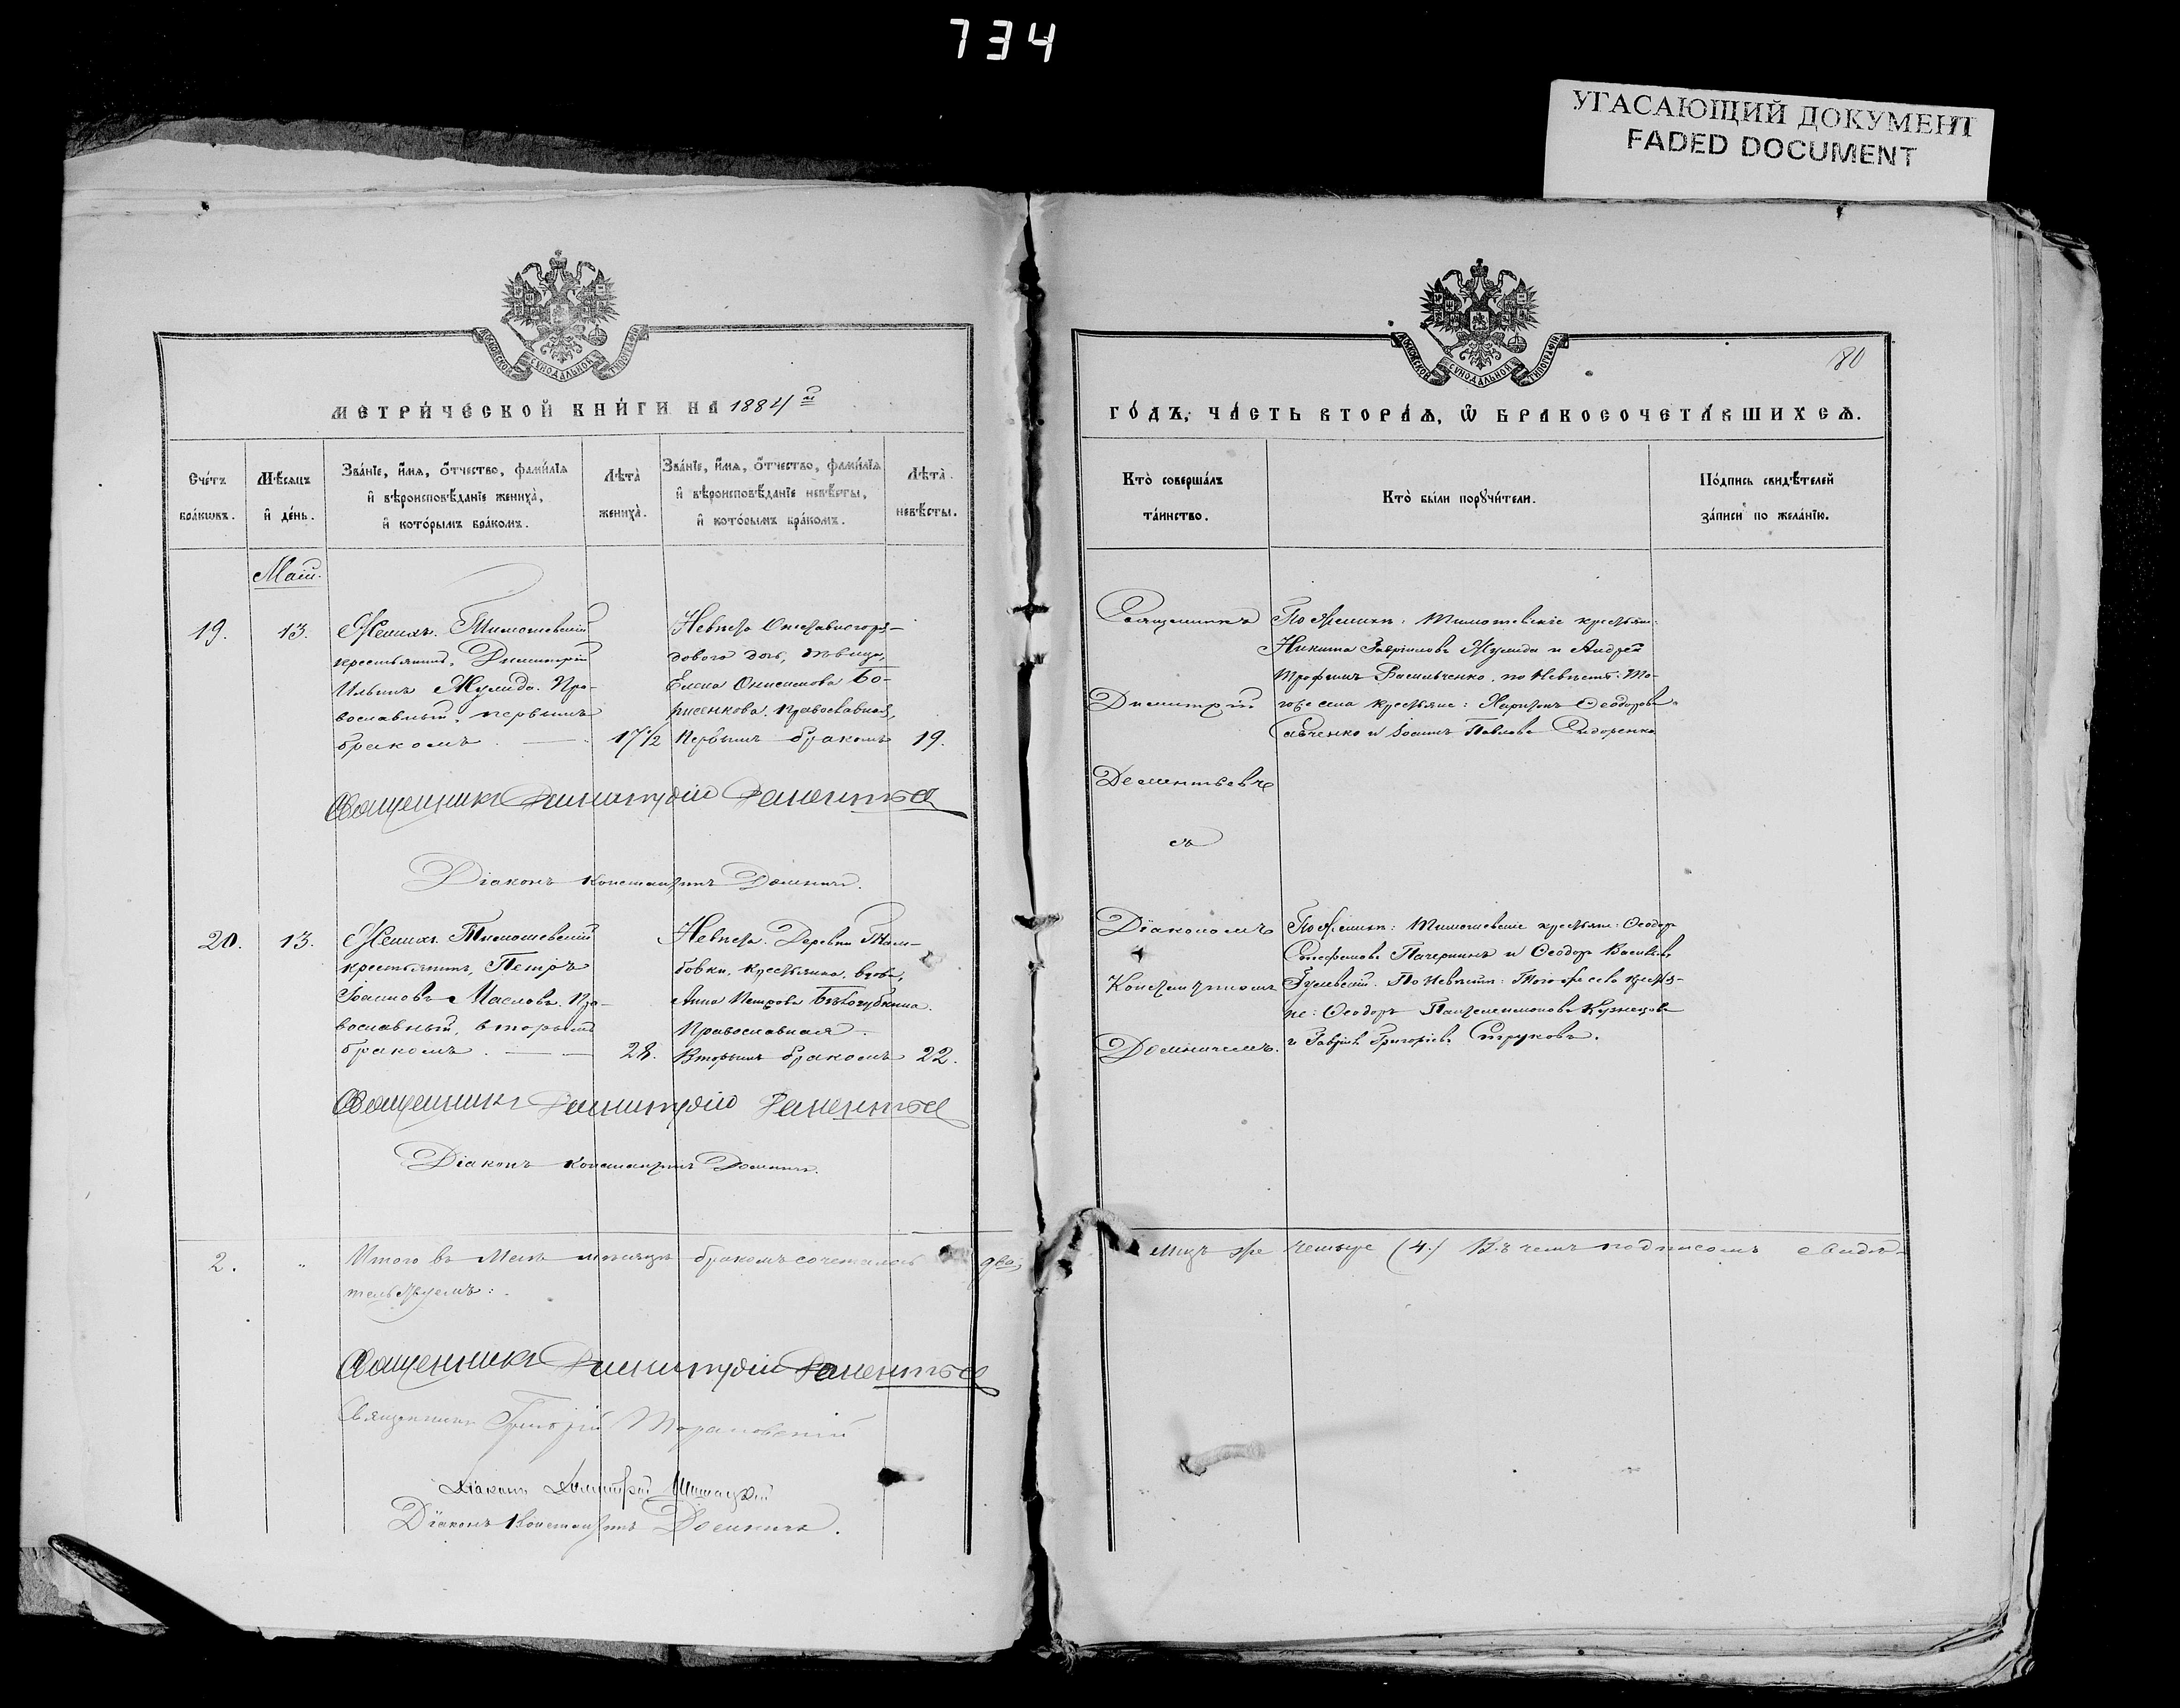 734
УГАСАЮЩИЙ ДОКУМЕНТ
FADED DOCUMENT
МОСКОВСКОЙ СѴНОДАЛЬНОЙ ТИПОГРАФІИ
МЕТРИ́ЧЕСКОЙ КНИ́ГИ НА 1884 й
Сче́тъ бра́кωвъ.
Мѣ́сяцъ и де́нь.
Зва́нїе, и́мѧ, ѻ҆́тчество, фами́лїѧ
и҆ вѣроисповѣ́данїе жениха̀,
и҆ кото́рымъ бра́комъ.
Лѣ́та̀ жениха̀.
Зва́нїе, и́мѧ, ѻ҆́тчество, фами́лїѧ
и҆ вѣроисповѣ́данїе невѣ́сты,
и҆ кото́рымъ бра́комъ.
Лѣ́та̀ невѣ́сты.
Май.
19.
13.
Женихъ. Тимошевскій
крестьянинъ, Димитрій
Ильинъ Жулида. Пра-
вославный, первымъ
бракомъ.
17½
Невѣста
дѣвица,
Елена Онисимова Бо-
рисенкова. Православная,
Первымъ бракомъ
19.
Священникъ Димитрій Дементьев
Діаконъ Константинъ Домничъ.
20.
13.
Женихъ. Тимошевскій
крестьянинъ, Петръ
Іоанновъ Масловъ. Пра-
вославный, вторымъ
бракомъ.
28.
Невѣста. Деревни Там-
бовки, крестьянка, вдова,
Анна Петрова
Православная
Вторымъ бракомъ
22.
Священникъ Димитрій Дементьев
Діаконъ Константинъ Домничъ.
2.
"
Итого въ Маѣ мѣсяцѣ бракомъ сочеталось два,
тельствуемъ:
Священникъ Димитрій Дементьев
Священникъ Григорій
Діаконъ Димитрій
Діаконъ Константинъ Домничъ.
80
ГО́ДЪ, ЧА́СТЬ ВТОРА́Ѧ, Ѽ БРАКОСОЧЕТА́ВШИХСѦ.
Кто̀ соверша́лъ
та́инство.
Кто̀ бы́ли порꙋчи́тели.
По́дпись свидѣ́телей
за́писи по жела́нїю.
Священникъ
Димитрій
Дементьевъ
съ
Діакономъ
Константиномъ
Домничемъ.
По Женихѣ: Тимошевскіе крестьяне:
Никита Гавріиловъ Жулида и Андрей
Трофимъ Васильченко. по Невѣстѣ: То-
гоже села крестьяне: Харитонъ Ѳеодоровъ
Савченко и Іоаннъ Павловъ Сидоренко
По Женихѣ: Тимошевскіе крестьяне: Ѳеодоръ
Стефановъ и Ѳеодоръ Васильевъ
По Невѣстѣ: Того-же села крестья-
не: Ѳеодоръ Пантелеимоновъ Кузнецовъ
и Гавріилъ Григоріевъ Струковъ.
лицъ же четыре (4.) Въ чемъ подписомъ свидѣ-